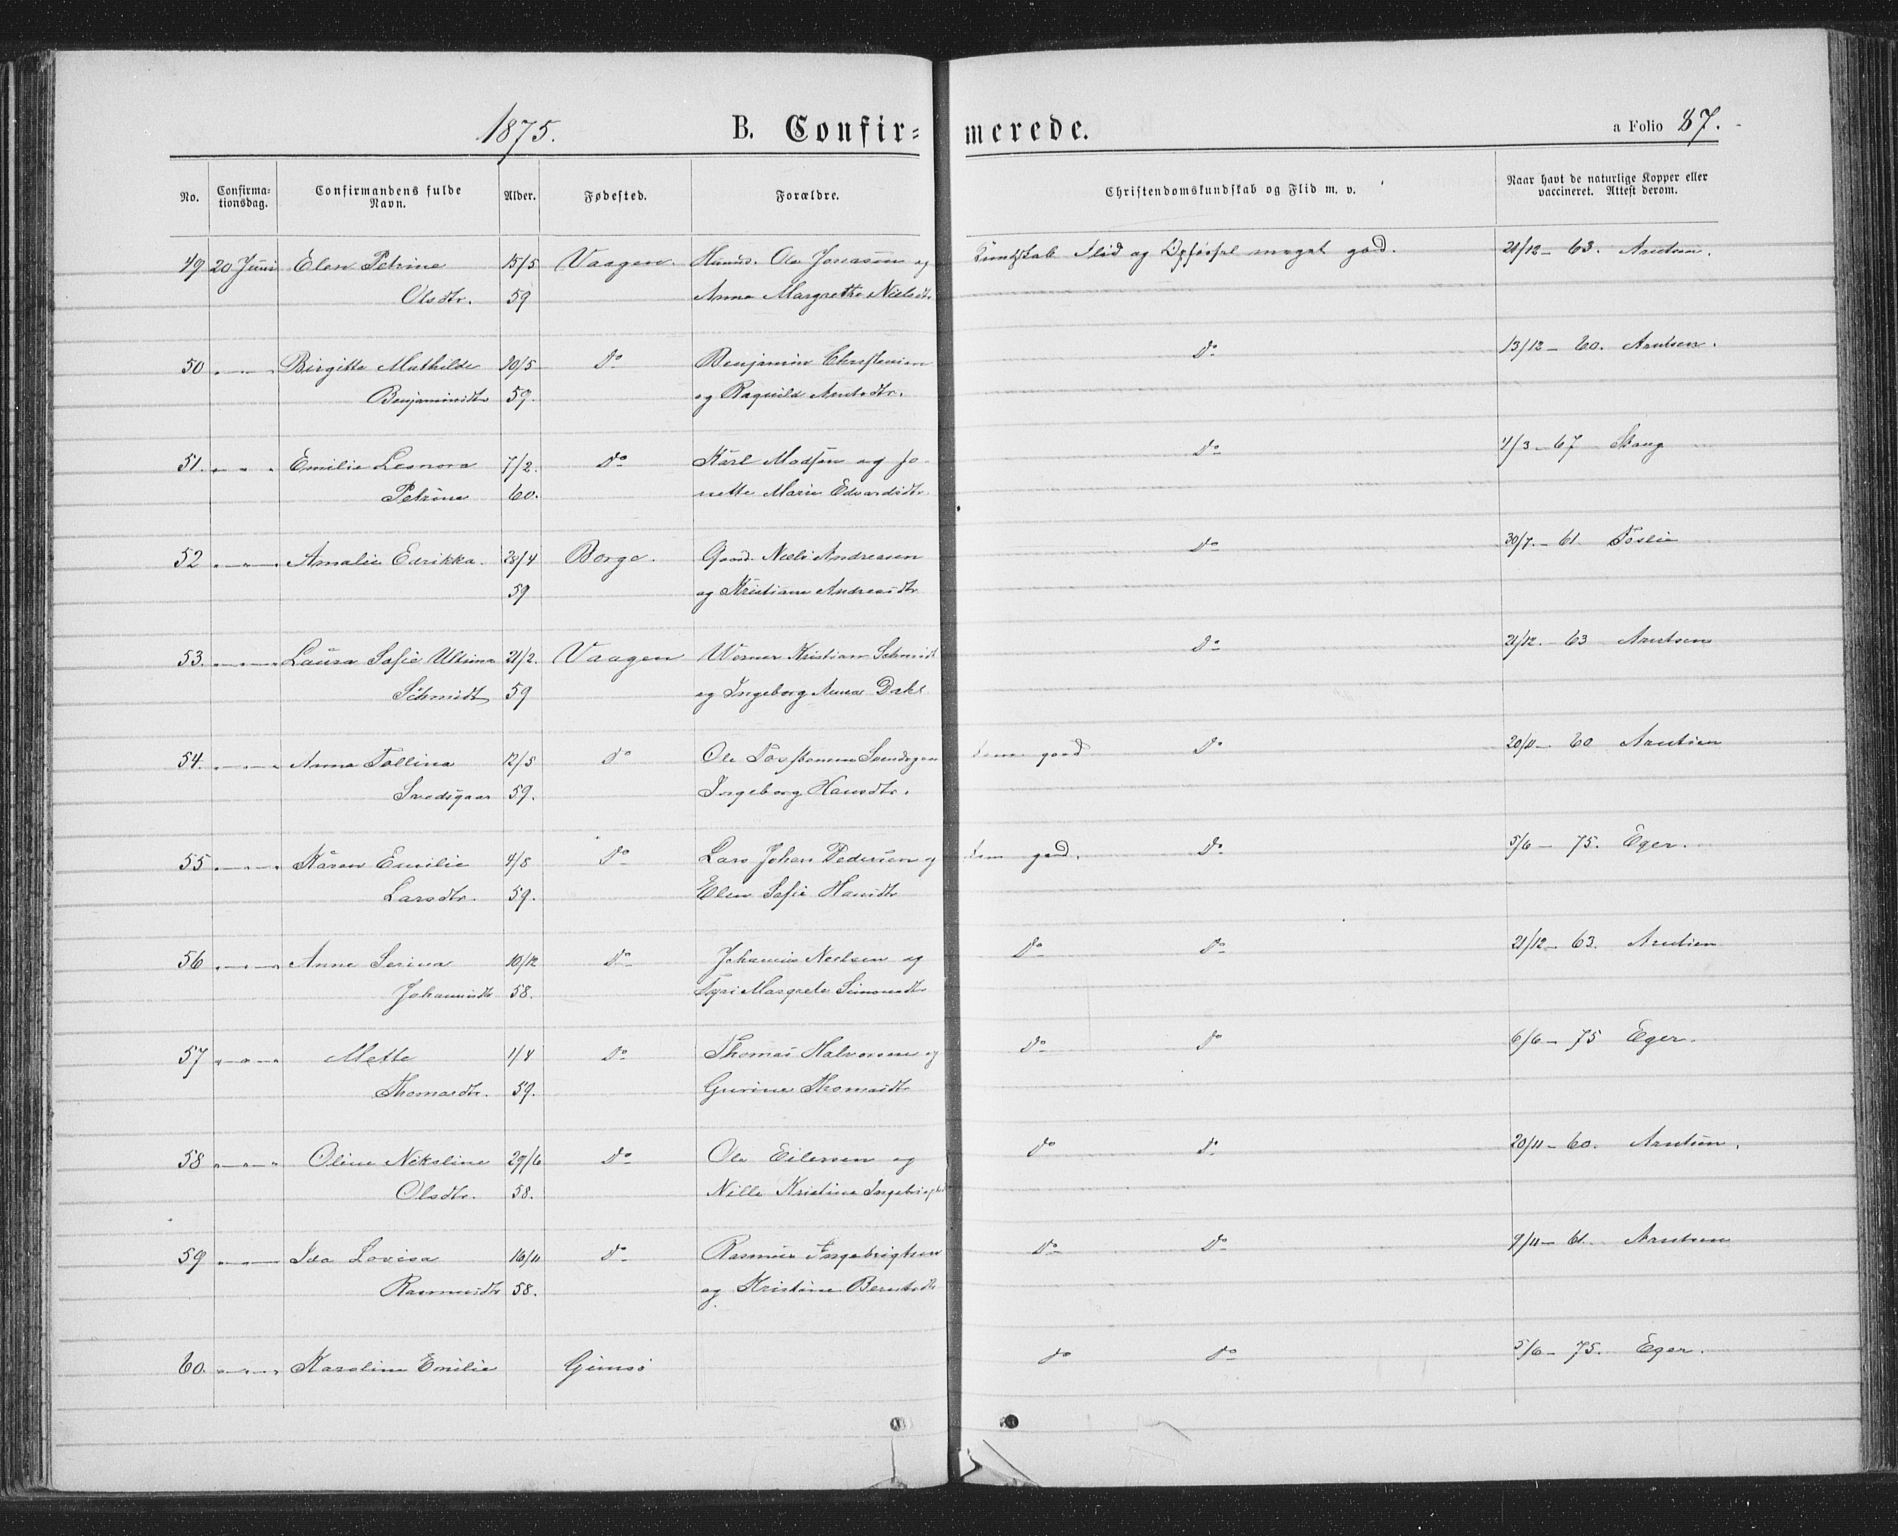 1875. B. Confir= merede. a Folio 87.
No. Confirma- Confirmandens fulde Alder. Fødested. Forældre. Christendomskundskab og Flid m. v. Naar havt de naturlige Kopper eller
tionsdag. Navn. vaccineret. Attest derom.
49 20 Juni Elen Petrine 15/5 Vaagen. Ole Jonassen og Kundskab Flid og Opførsel meget god. 21/12 - 63. Arntsen.
Olsdtr. 59 Anne Margrethe Nielsdtr.
50 " " " Birgitte Mathilde 20/5 Do Benjamin Christensen Do 13/12 - 60. Arntsen.
Benjaminsdtr 59. og Ragnild Arntsdtr.
51. " " " Emilie Leonora 7/2. Do Karl Madsen og Jo- Do 4/3 - 67 Skaug
Petrine 60. nette Marie Edvardsdtr.
52 " " " Amalie Edrikka. 28/4 Borge. Gaard. Niels Andreasen Do 30/7. - 61
59 og Kristiane Andreasdtr
53. " " " Laura Sofie Ultima 21/2. Vaagen Werner Kristian Schmidt Do 21/12. 63 Arntsen
Schmidt 59 og Ingeborg Anna Dahl
54. " " " Anna Tollina 12/5 Do Ole god Do 20/11 - 60 Arntsen
59. Ingeborg Hansdtr.
55 " " " Karen Emilie 4/8 Do Lars Johan Pedersen og god. Do 5/6 - 75. Eger.
Larsdtr. 59. Elen Sofie Hansdtr
56 " " " Anne Serina 10/12 Do Johannes Nielsen og Do Do 21/12 - 63. Arntsen
Johannesdtr 58. Margrete Simonsdtr
57 " " " Mette 1/4 Do Thomas Halvorsen og Do Do 6/6 - 75 Eger.
Thomasdtr. 59. Gurine Thomasdtr
58 " " " Oline Nikoline 29/6 Do Ole Eilersen og Do Do 20/11 - 60. Arntsen.
Olsdtr. 58. Nille Kristine
59 " " " Ida Lovisa 16/11 Do Rasmus Ingebrigtsen Do Do 9/11 - 61. Arntsen
Rasmusdtr 58. og Kristine Berntsdtr
60. " " " Karoline Emilie Gimsø Do Do 5/6 - 75. Eger.